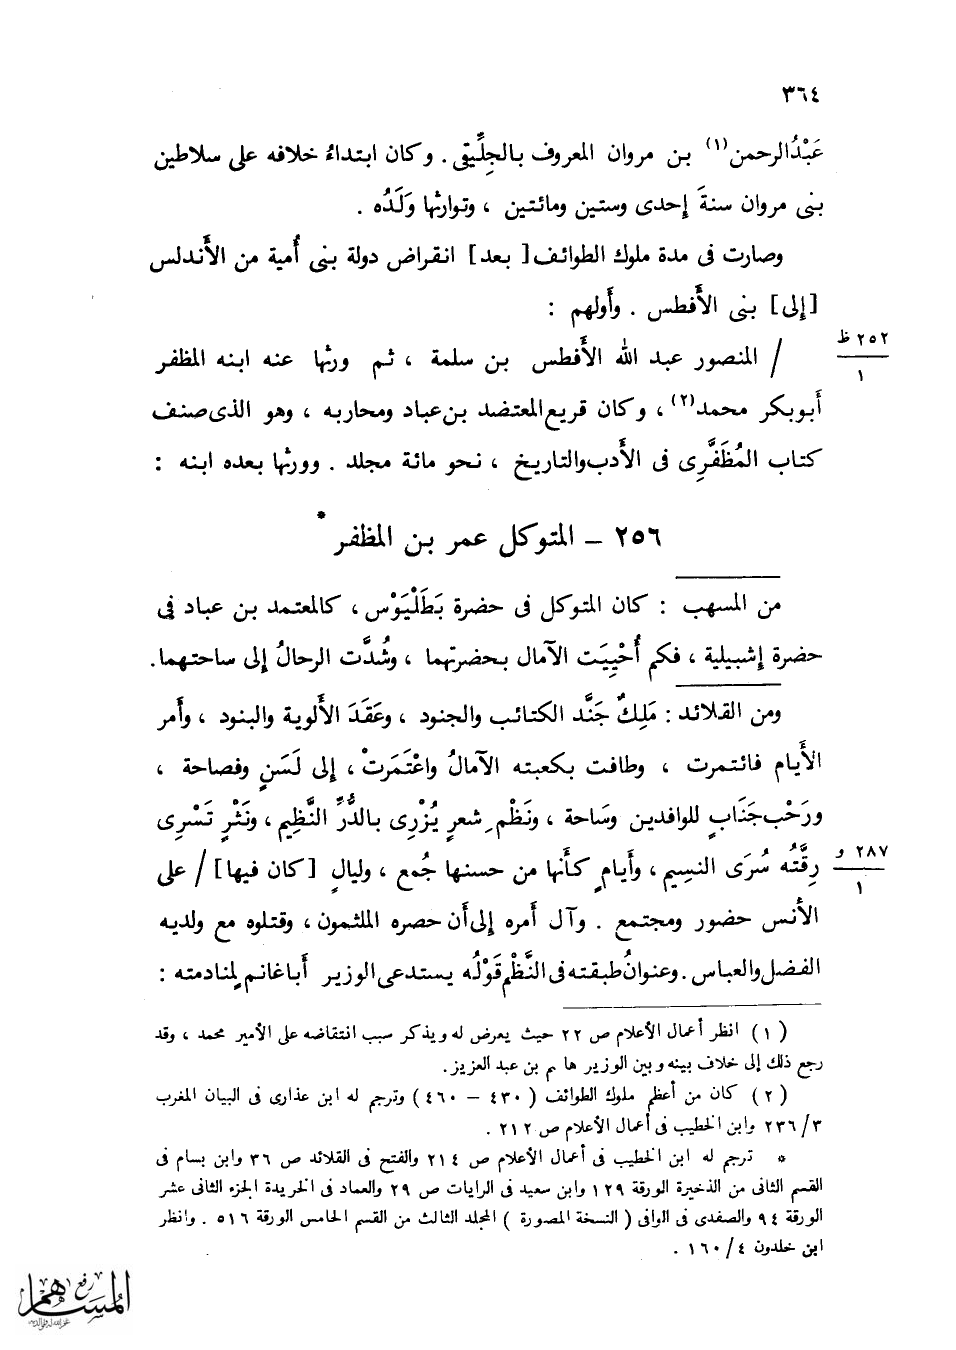 ٣٦٤
عَبْدُ الرحمن(١) بن مروان المعروف بالجِلِّيقى . وكان ابتداءُ خلافه على سلاطين
بنى مروان سنةَ إحدى وستين ومائتين ، وتوارثها وَلَدُه .
وصارت فى مدة ملوك الطوائف [ بعد ] انقراض دولة بنى أُمية من الأَندلس
[إلى] بنى الأَفطس . وأَولهم :
٢٥٢ ظ
١
/ المنصور عبد الله الأَفطس بن سلمة ، ثم ورثها عنه ابنه المظفر
أَبوبكر محمد(٢) ، وكان قريع المعتضد بن عباد ومحاربه ، وهو الذى صنف
كتاب المُظَفَّرِى فى الأَدب والتاريخ ، نحو مائة مجلد . وورثها بعده ابنه :
٢٥٦ – المتوكل عمر بن المظفر*
من المسهب : كان المتوكل فى حضرة بَطَلْيَوْس ، كالمعتمد بن عباد فى
حضرة إشبيلية ، فكم أُحْيِيَت الآمال بحضرتهما ، وشُدَّت الرحالُ إلى ساحتهما.
ومن القلائد : مَلِكٌ جَنَّد الكتائب والجنود ، وعَقَدَ الأَلوية والبنود ، وأَمر
الأَيام فائتمرت ، وطافت بكعبته الآمالُ واعْتَمَرتْ ، إلى لَسَنٍ وفصاحة ،
ورَحْب جَنَابٍ للوافدين وسَاحة ، ونَظْمِ شعرٍ يُزْرِى بالدُّرِّ النَّظِيم ، ونَثْرٍ تَسْرِى
٢٨٧ و
١
رِقَّتُه سُرَى النسيم ، وأَيامٍ كأَنها من حسنها جُمع ، وليالٍ [كان فيها] / على
الأُنس حضور ومجتمع . وآل أَمره إلى أَن حصره الملثمون ، وقتلوه مع ولديه
الفضل والعباس . وعنوانُ طبقته فى النَّظْم قَوْلُه يستدعى الوزير أَبا غانم لمنادمته :
(١) انظر أعمال الأعلام ص ٢٢ حيث يعرض له ويذكر سبب انتقاضه على الأمير محمد ، وقد
رجع ذلك إلى خلاف بينه وبين الوزير هاشم بن عبد العزيز.
(٢) كان من أعظم ملوك الطوائف (٤٣٠ – ٤٦٠) وترجم له ابن عذارى فى البيان المغرب
٢٣٦/٣ وابن الخطيب فى أعمال الأعلام ص ٢١٢ .
* ترجم له ابن الخطيب فى أعمال الأعلام ص ٢١٤ والفتح فى القلائد ص ٣٦ وابن بسام فى
القسم الثانى من الذخيرة الورقة ١٢٩ وابن سعيد فى الرايات ص ٢٩ والعماد فى الخريدة الجزء الثانى عشر
الورقة ٩٤ والصفدى فى الوافى (النسخة المصورة) المجلد الثالث من القسم الخامس الورقة ٥١٦ . وانظر
ابن خلدون ١٦٠/٤ .
رفع
المساهم